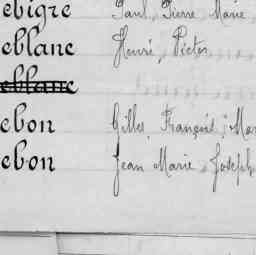 ebigre Paul, Pierre Marie
eblanc Henri, Victor
eblanc
ebon Gilles, François, Mar
ebon Jean Marie, Joseph